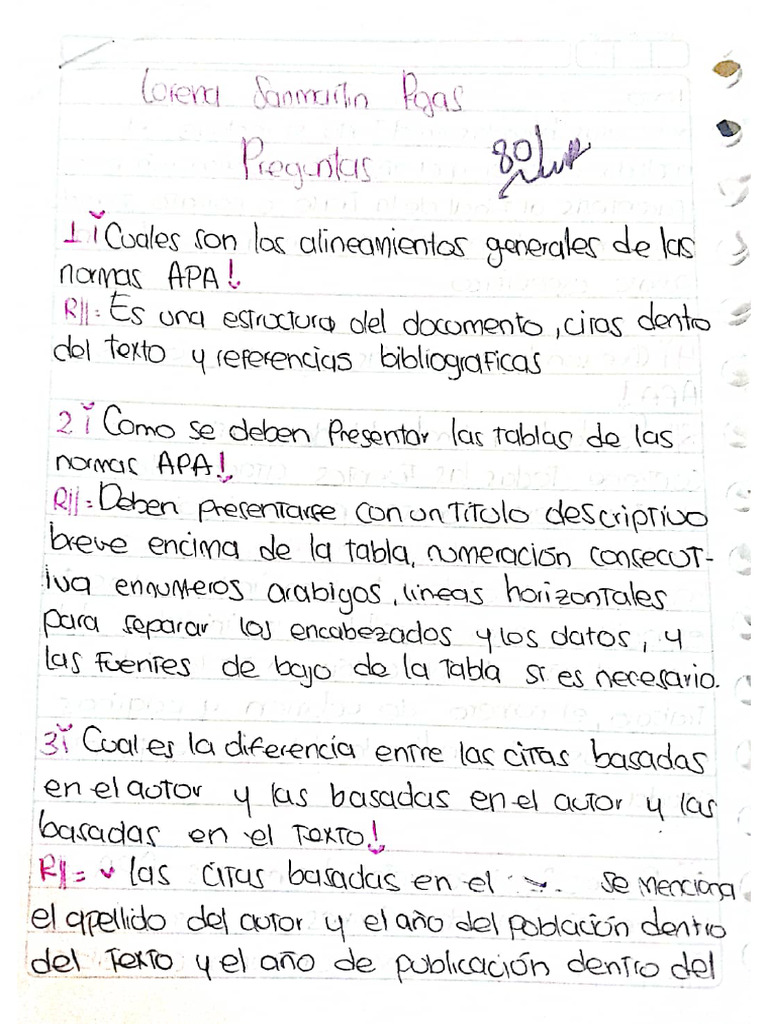 Lorena Sanmartin Rojas
Preguntas
80/
1 ¿Cuales son los alineamientos generales de las
normas APA?
R//= Es una estructura del documento, ciras dentro
del texto y referencias bibliograficas
2 ¿Como se deben Presentar las tablas de las
normas APA?
R//= Deben presentarse con un Titulo descriptivo
breve encima de la tabla, numeración consecut-
iva en numeros arabigos, lineas horizontales
para separar los encabezados y los datos, y
las fuentes de bajo de la Tabla si es necesario.
3 ¿Cual es la diferencia entre las citas basadas
en el autor y las basadas en el autor y las
basadas en el Texto?
R//= las citas basadas en el se menciona
el apellido del autor y el año del población dentro
del Texto y el año de publicación dentro del